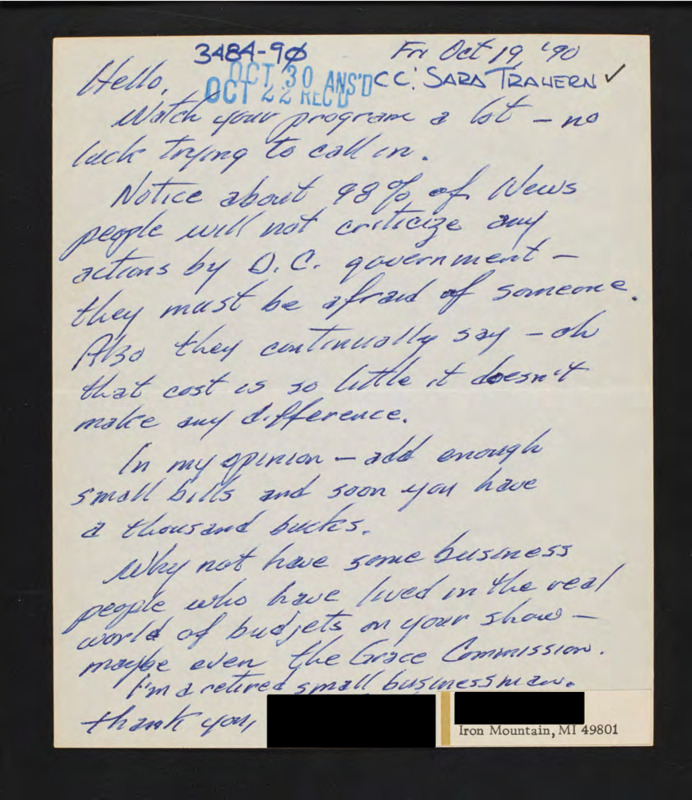 3484-90 Fri Oct 19, '90
Hello, OCT 30 ANS'D CC: SARA TRAHERN ✓
OCT 22 REC'D
Watch your program a lot – no
luck trying to call in.
Notice about 98% of News
people will not criticize any
actions by D.C. government –
they must be afraid of someone.
Also they continually say – oh
that cost is so little it doesn't
make any difference.
In my opinion – add enough
small bills and soon you have
a thousand bucks.
Why not have some business
people who have lived in the real
world of budjets on your show –
maybe even the Grace Commission.
I'm a retired small businessman.
thank you,
Iron Mountain, MI 49801